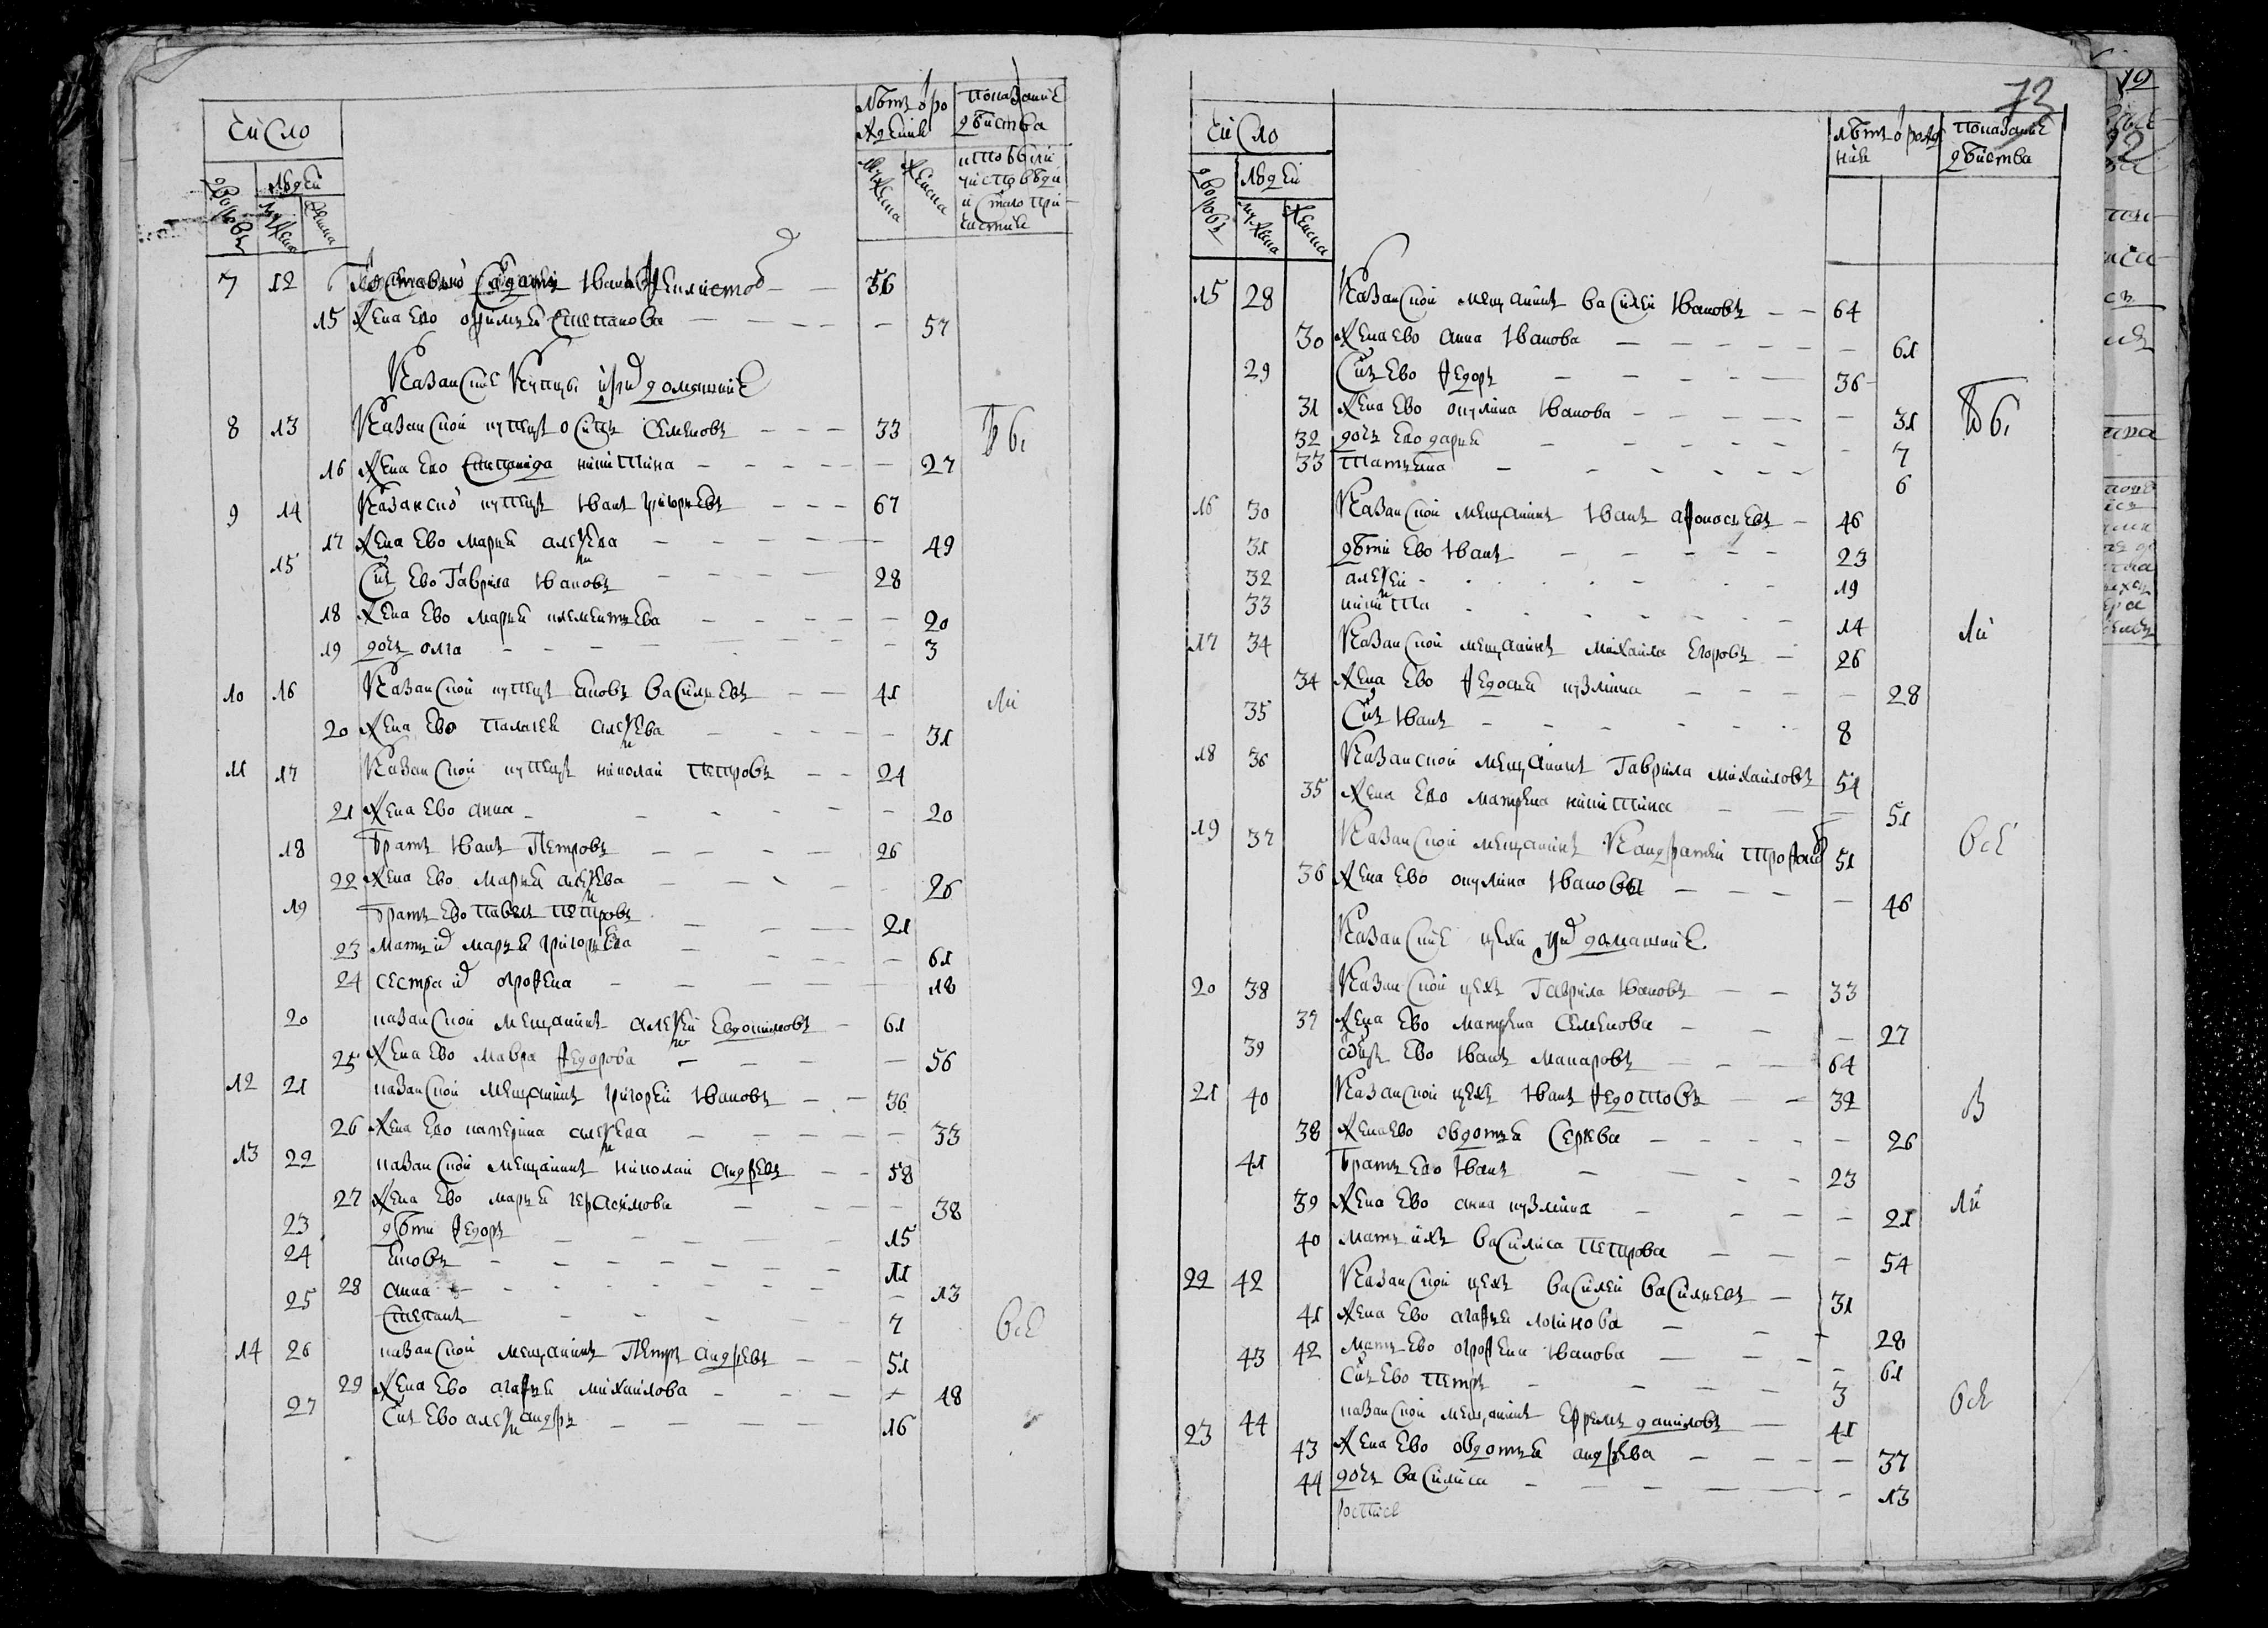 Число
Летъ о рождении
Показание действа
дворовъ
людей
мужеска
женска
мужеска
женска
кто были у исповеди и святаго причастия
7 12 Отставной салдатъ Иванъ Феклистов 56
15 Жена ево Степанова 57
Казанские купцы и их домашние
8 13 Казанской купецъ Осипъ Семеновъ 33
16 Жена ево Степанида Никитина 27
бы
9 14 Казанской купецъ Иванъ Григорьевъ 67
17 Жена ево Марья Алексеева 49
15 Сынъ ево Гаврила Ивановъ 28
18 Жена ево Марья Клементьева 20
19 дочь Олга 3
10 16 Казанской купецъ Яковъ Васильевъ 41
ли
20 Жена ево Палагея Алексеева 31
11 17 Казанской купецъ Николай Петровъ 24
21 Жена ево Анна 20
18 Братъ Иванъ Петровъ 26
22 Жена ево Марья Алексеева 26
19 Братъ ево Павелъ Петровъ 21
23 Мать их Марья Григорьева 61
24 сестра их Огрофена 18
20 казанской мещанинъ Алексей Евдокимовъ 61
25 Жена ево Мавра Федорова 56
12 21 казанской мещанинъ Григорей Ивановъ 36
26 Жена ево Катерина Алексеева 33
13 22 казанской мещанинъ Николай Андреевъ 58
27 Жена ево Марья Герасимова 38
23 дети Федоръ 15
24 Яковъ 11
28 Анна 13
25 Степанъ 7
все
14 26 казанской мещанинъ Петръ Андреевъ 51
29 Жена ево Агафья Михайлова 48
27 Сынъ ево Александръ 16
73
Число
Летъ о рождении
Показание действа
дворовъ
людей
мужеска
женска
15 28 Казанской мещанинъ Василей Ивановъ 64
30 Жена ево Анна Иванова 61
29 Сынъ ево Федоръ 36
31 Жена ево Окулина Иванова 31
бы
32 дочь ево Дарья 7
33 Татьяна 6
16 30 Казанской мещанинъ Иванъ Афонасьевъ 46
31 дети ево Иванъ 23
32 Алексей 19
33 Никита 14
ли
17 34 Казанской мещанинъ Михайла Егоровъ 26
34 Жена ево Федосья Кузмина 28
35 Сынъ Иванъ 8
18 36 Казанской мещанинъ Гаврила Михайловъ 54
35 Жена ево Матрена Никитина 51
19 37 Казанской мещанинъ Кандратей Трофимов 51
все
36 Жена ево Окулина Иванова 46
Казанские цехи и их домашние
20 38 Казанской цехъ Гаврила Ивановъ 33
37 Жена ево Матрена Семенова 27
39 отецъ ево Иванъ Макаровъ 64
21 40 Казанской цехъ Иванъ Федотовъ 32
в
38 Жена ево Овдотья Сергеева 26
41 Братъ ево Иванъ 23
39 Жена ево Анна Кузмина 21
ли
40 Мать ихъ Василиса Петрова 54
22 42 Казанской цехъ Василей Васильевъ 31
41 Жена ево Агафья Логинова 28
42 Мать ево Огрофена Иванова 61
43 Сынъ ево Петръ 3
все
23 44 казанской мещанинъ Ефремъ Даниловъ 41
43 Жена ево Овдотья Андреева 37
44 дочь Василиса 13